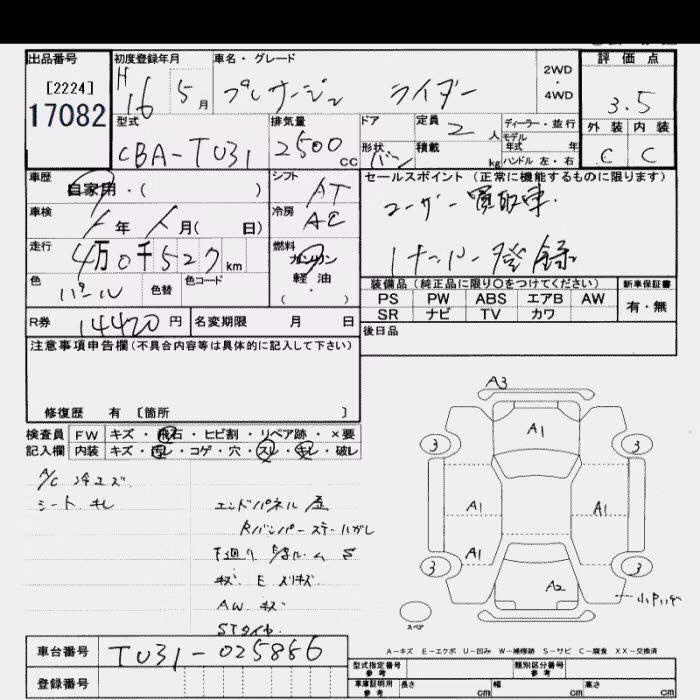 出品番号 初度登録年月 車名・グレード 2WD 4WD 評価点
[2224]
17082
H16 5月 プレサージュ ライダー 3.5
型式 排気量 ドア 定員 ディーラー・並行 外装 内装
CBA-TU31 2500 cc 2人 モデル年式 年
形状 バン 積載 kg ハンドル 左・右 C C
車歴 シフト セールスポイント(正常に機能するものに限ります)
自家用・( ) AT ユーザー買取車.
車検 冷房
年 月( 日) AC 1ナンバー登録
走行 燃料
4万0千527km ガソリン
色 色替 色コード 軽油 装備品(純正品に限り○をつけてください) 新車保証書
パール ・( ) PS PW ABS エアB AW 有・無
SR ナビ TV カワ
R券 14420円 名変期限 月 日 後日品
注意事項申告欄(不具合内容等は具体的に記入して下さい)
修復歴 有 [箇所 ]
検査員 FW キズ・飛石・ヒビ割・リペア跡・×要
記入欄 内装 キズ・汚レ・コゲ・穴・スレ・キレ・破レ
A/C 冷エズ
シート キレ
エンドパネル 歪
Rバンパーステーハガレ
キズ E
AW キズ
STタイヤ
A3
A1
3 3
A1 A1
A1
3 3
A2
スペア
A-キズ E-エクボ U-凹み W-補修跡 S-サビ C-腐食 XX-交換済
車台番号 TU31-025886
登録番号
型式指定番号 参考 類別区分番号 参考
車庫証明用 参考 長さ cm 幅 cm 高さ cm